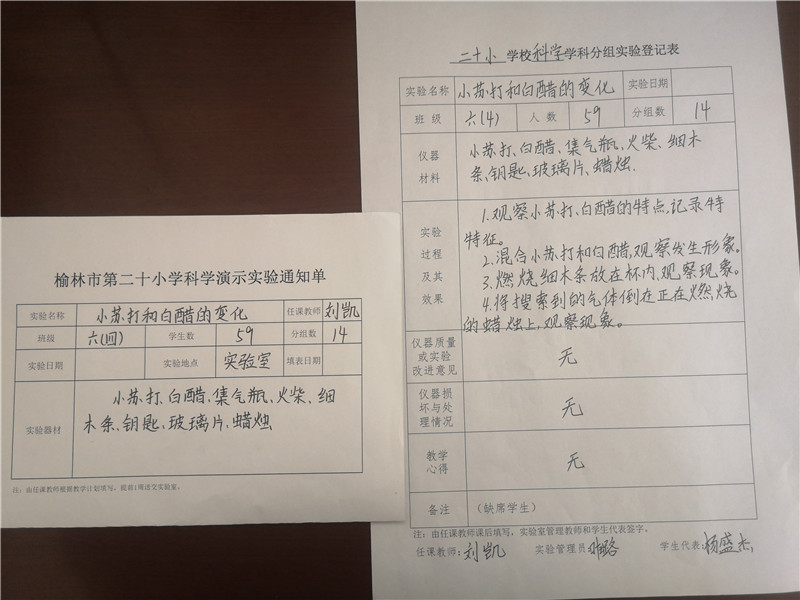 榆林市第二十小学科学演示实验通知单
实验名称 小苏打和白醋的变化 任课教师 刘凯
班级 六(四) 学生数 59 分组数 14
实验日期 实验地点 实验室 填表日期
实验器材
小苏打、白醋、集气瓶、火柴、细
木条、钥匙、玻璃片、蜡烛
注：由任课教师根据教学计划填写，提前1周送交实验室。
二十小 学校 科学 学科分组实验登记表
实验名称 小苏打和白醋的变化 实验日期
班 级 六(4) 人 数 59 分组数 14
仪器
材料
小苏打、白醋、集气瓶、火柴、细木
条、钥匙、玻璃片、蜡烛.
实验
过程
及其
效果
1.观察小苏打、白醋的特点,记录特
特征。
2.混合小苏打和白醋,观察发生形象。
3.燃烧细木条放在杯内,观察现象。
4.将搜索到的气体倒在正在燃烧
的蜡烛上,观察现象。
仪器质量
或实验
改进意见
无
仪器损
坏与处
理情况
无
教学
心得
无
备注 （缺席学生）
注：由任课教师课后填写，实验室管理教师和学生代表签字。
任课教师: 刘凯 实验管理员: 学生代表: 杨盛杰